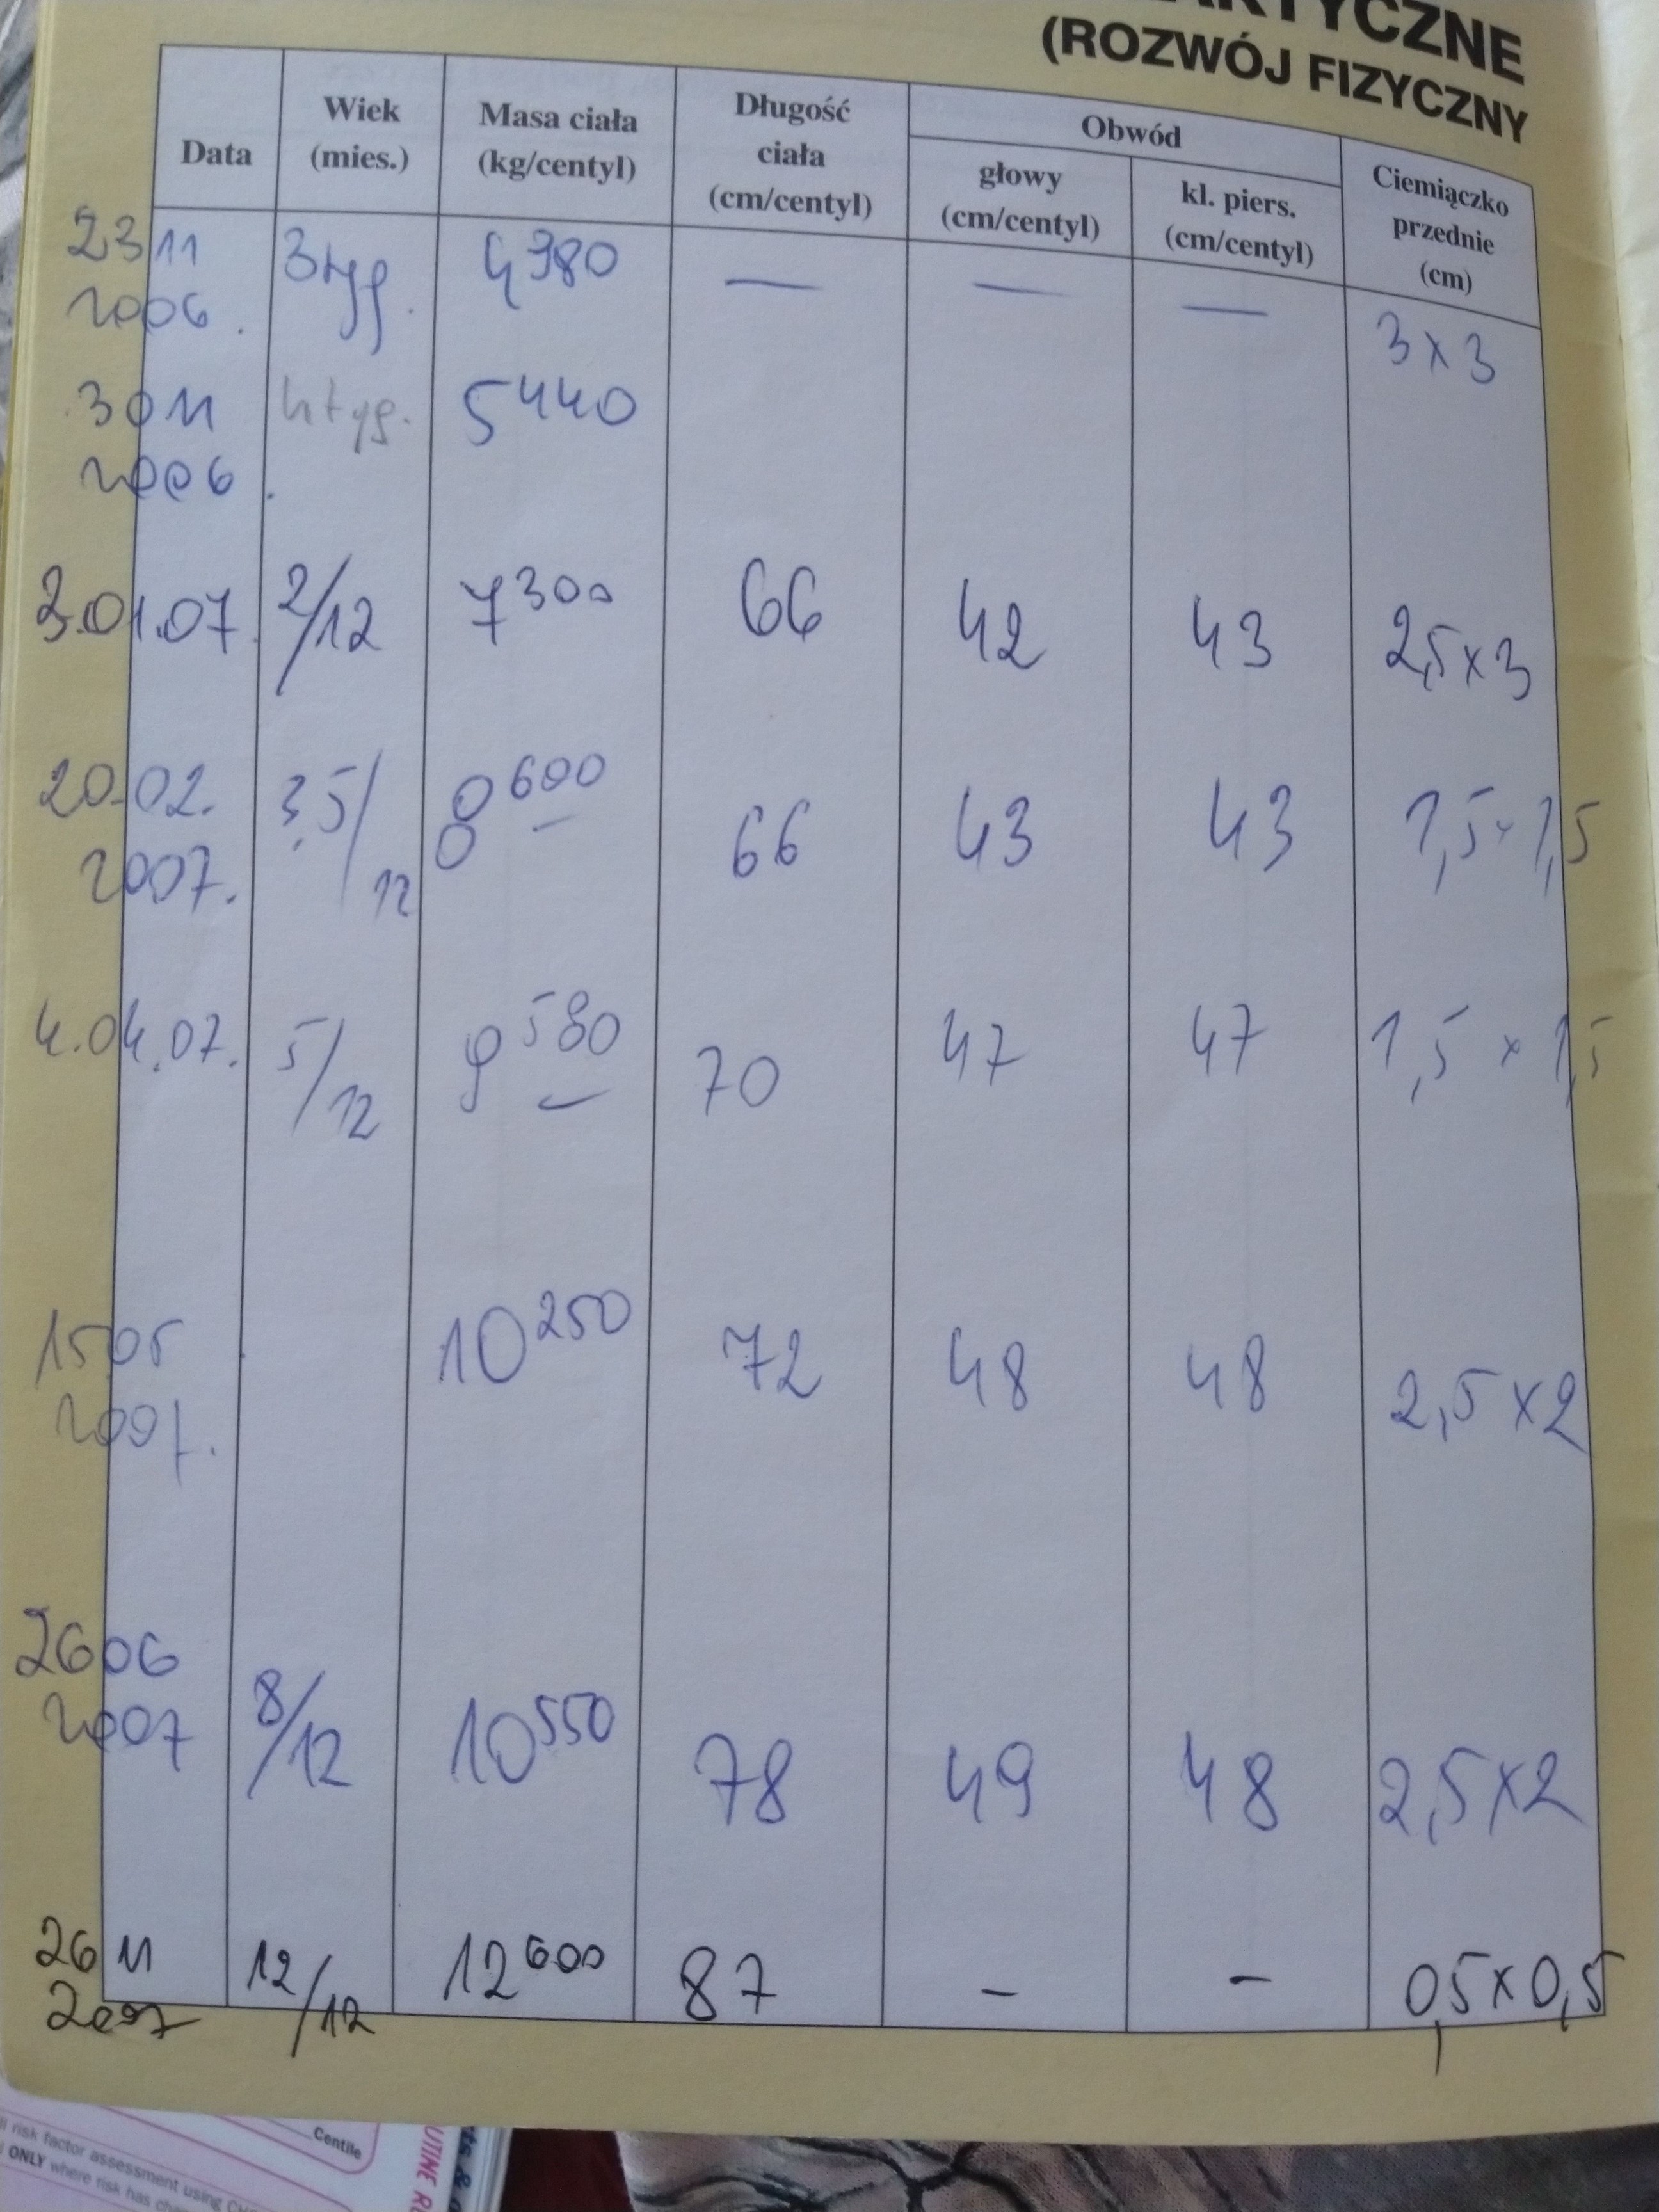 (ROZWÓJ FIZYCZNY
Data
Wiek
(mies.)
Masa ciała
(kg/centyl)
Długość
ciała
(cm/centyl)
Obwód
głowy
(cm/centyl)
kl. piers.
(cm/centyl)
Ciemiączko
przednie
(cm)
23 11 3 tyg. 4980 — — — 3 x 3
2006.
30 11 4 tyg. 5440
2006.
3.01.07. 2/12 7300 66 42 43 2,5 x 3
20.02. 3,5/12 8600 66 43 43 1,5 x 1,5
2007.
4.04.07. 5/12 9580 70 47 47 1,5 x 1,5
15 05 10250 72 48 48 2,5 x 2
2007.
26 06
2007 8/12 10550 78 49 48 2,5 x 2
26 11 12/12 12600 87 - - 0,5 x 0,5
2007
Centile
risk factor assessment using
ONLY where risk has